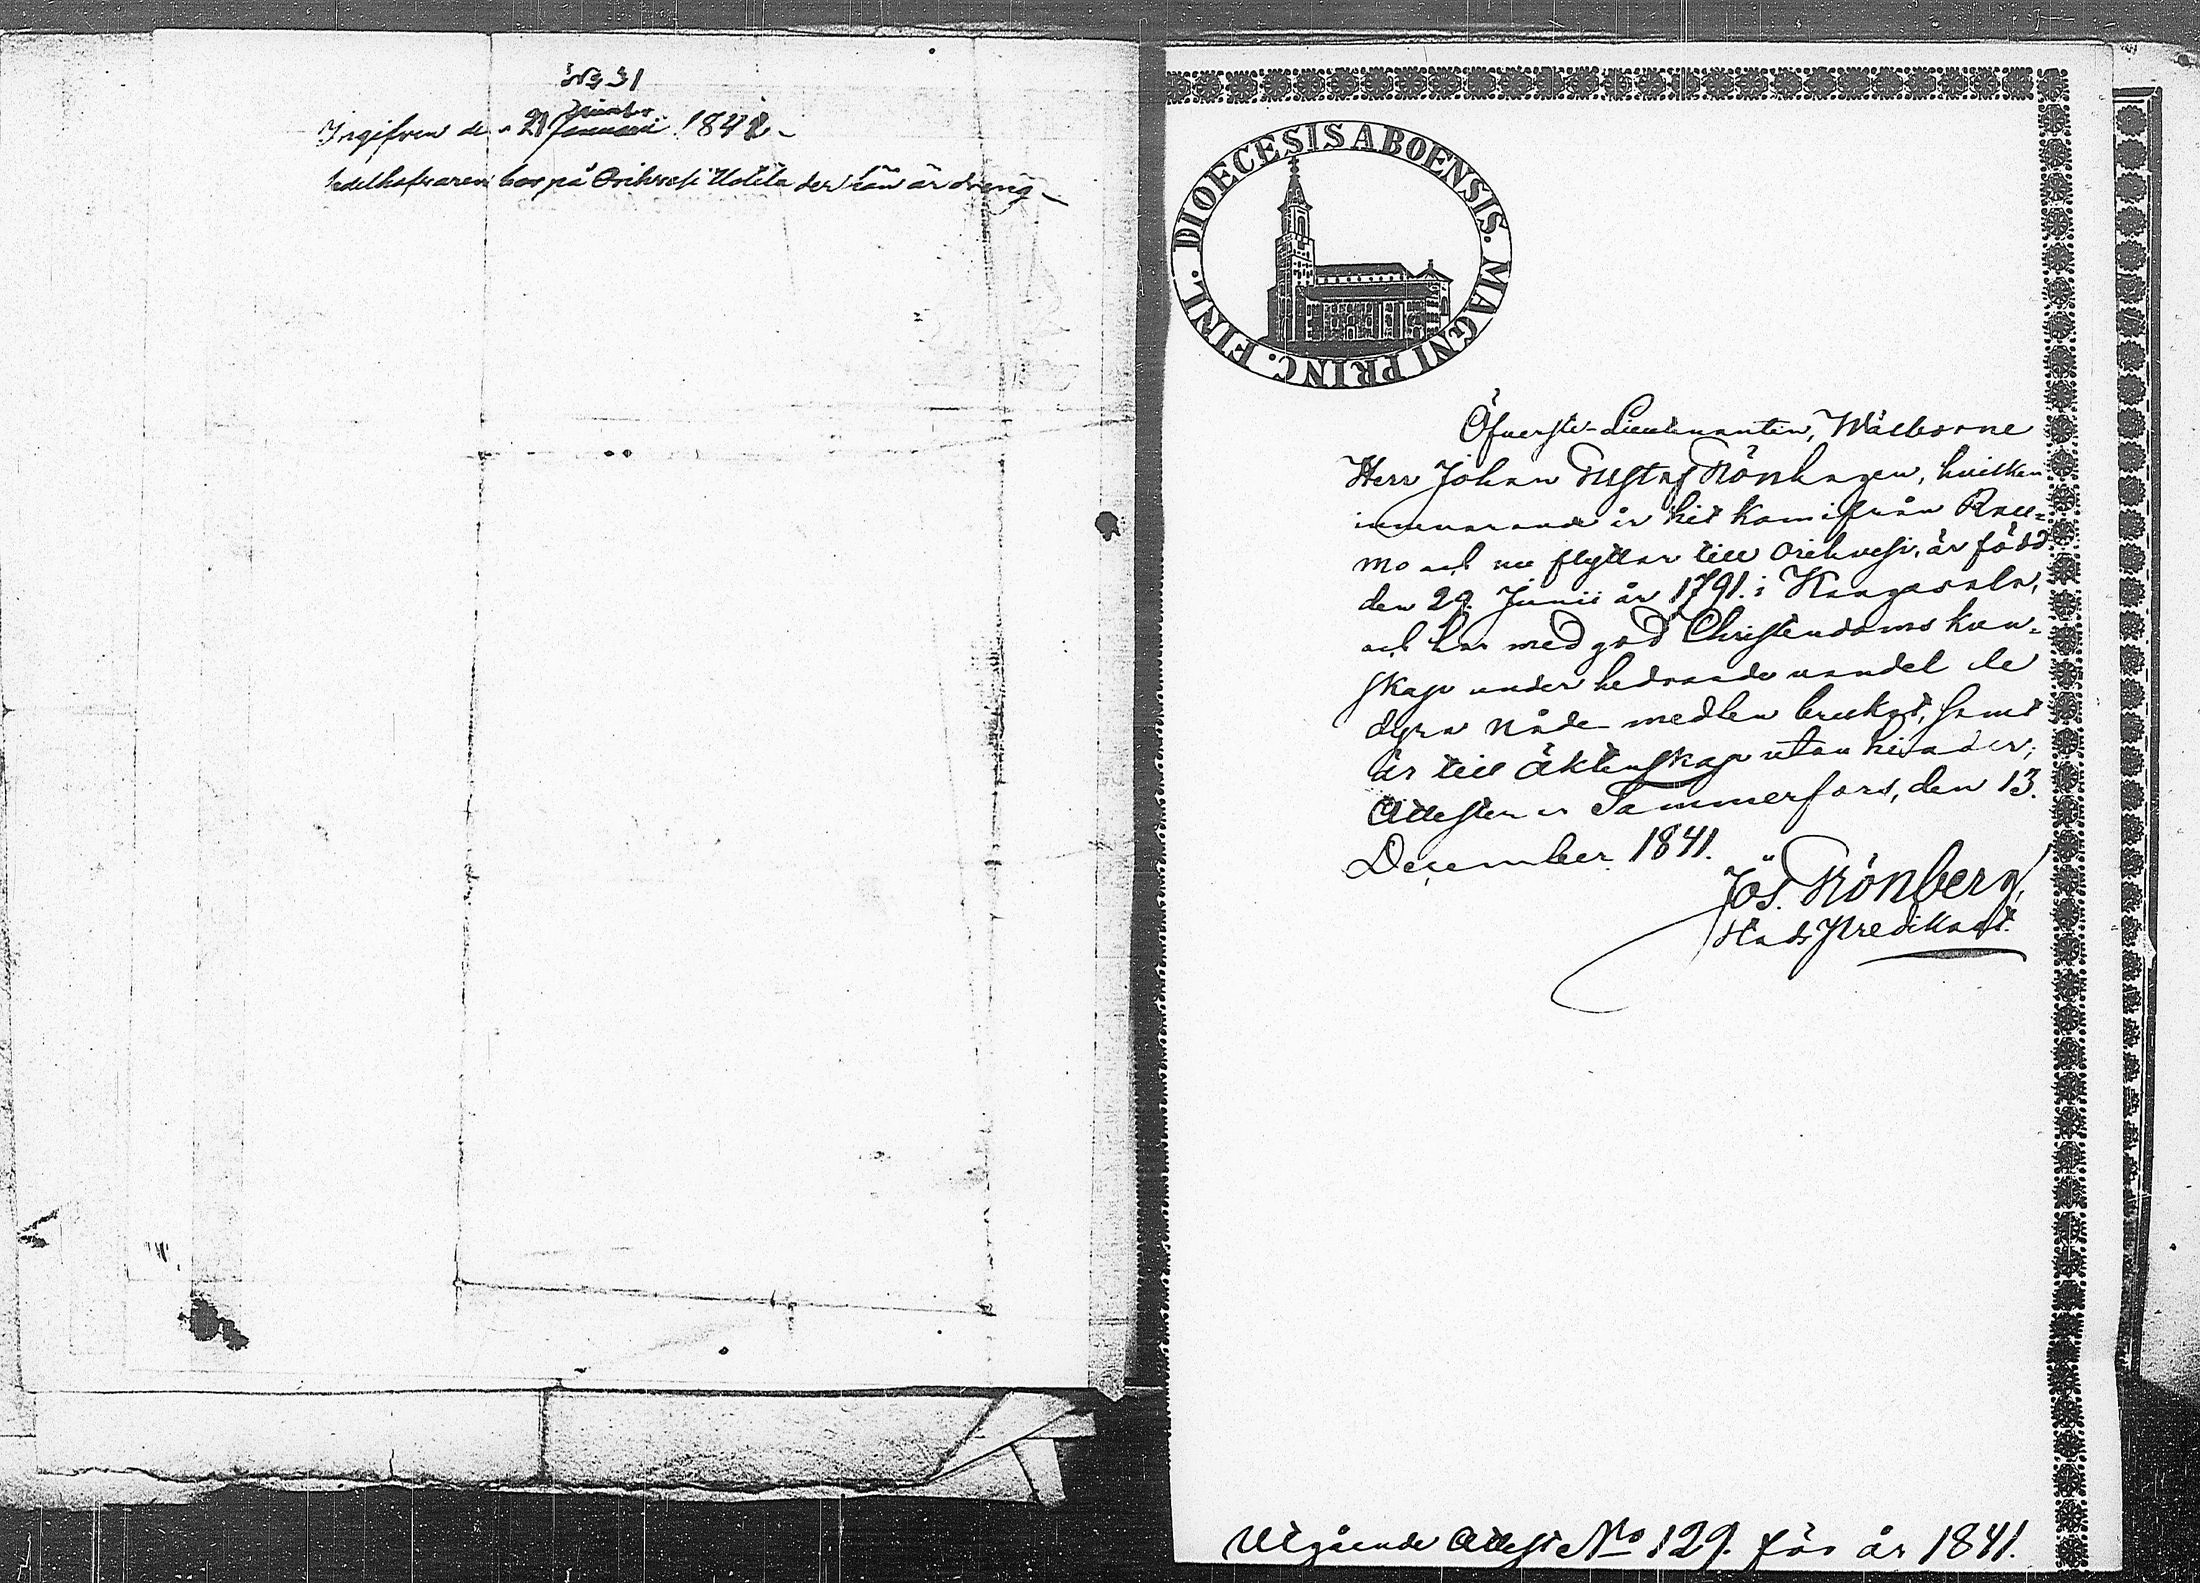 No 31
Ingifven den 21 Januari 1842
Sedelhafvaren bor på Orihvesi Uotila der han är dräng
DIOECESIS ABOENSIS. MAGNI PRINC. FINL.
Öfverste-Lieutnanten, Wälborne
Herr Johan Gustaf Rönhagen, hvilken
innevarande år hit kom ifrån Rau=
mo och nu flyttar till Orihvesi, är född
den 29. Junii år 1791. i Kangasala,
och har med god Christendoms kun=
skap under hedrande vandel de
dyra Nåde medlen brukat, samt
är till Äktenskap utan hinder;
Attesterar Tammerfors, den 13.
December 1841.
Jos. Grönberg,
StadsPredikant.
Utgående Attest No 129. för år 1841.